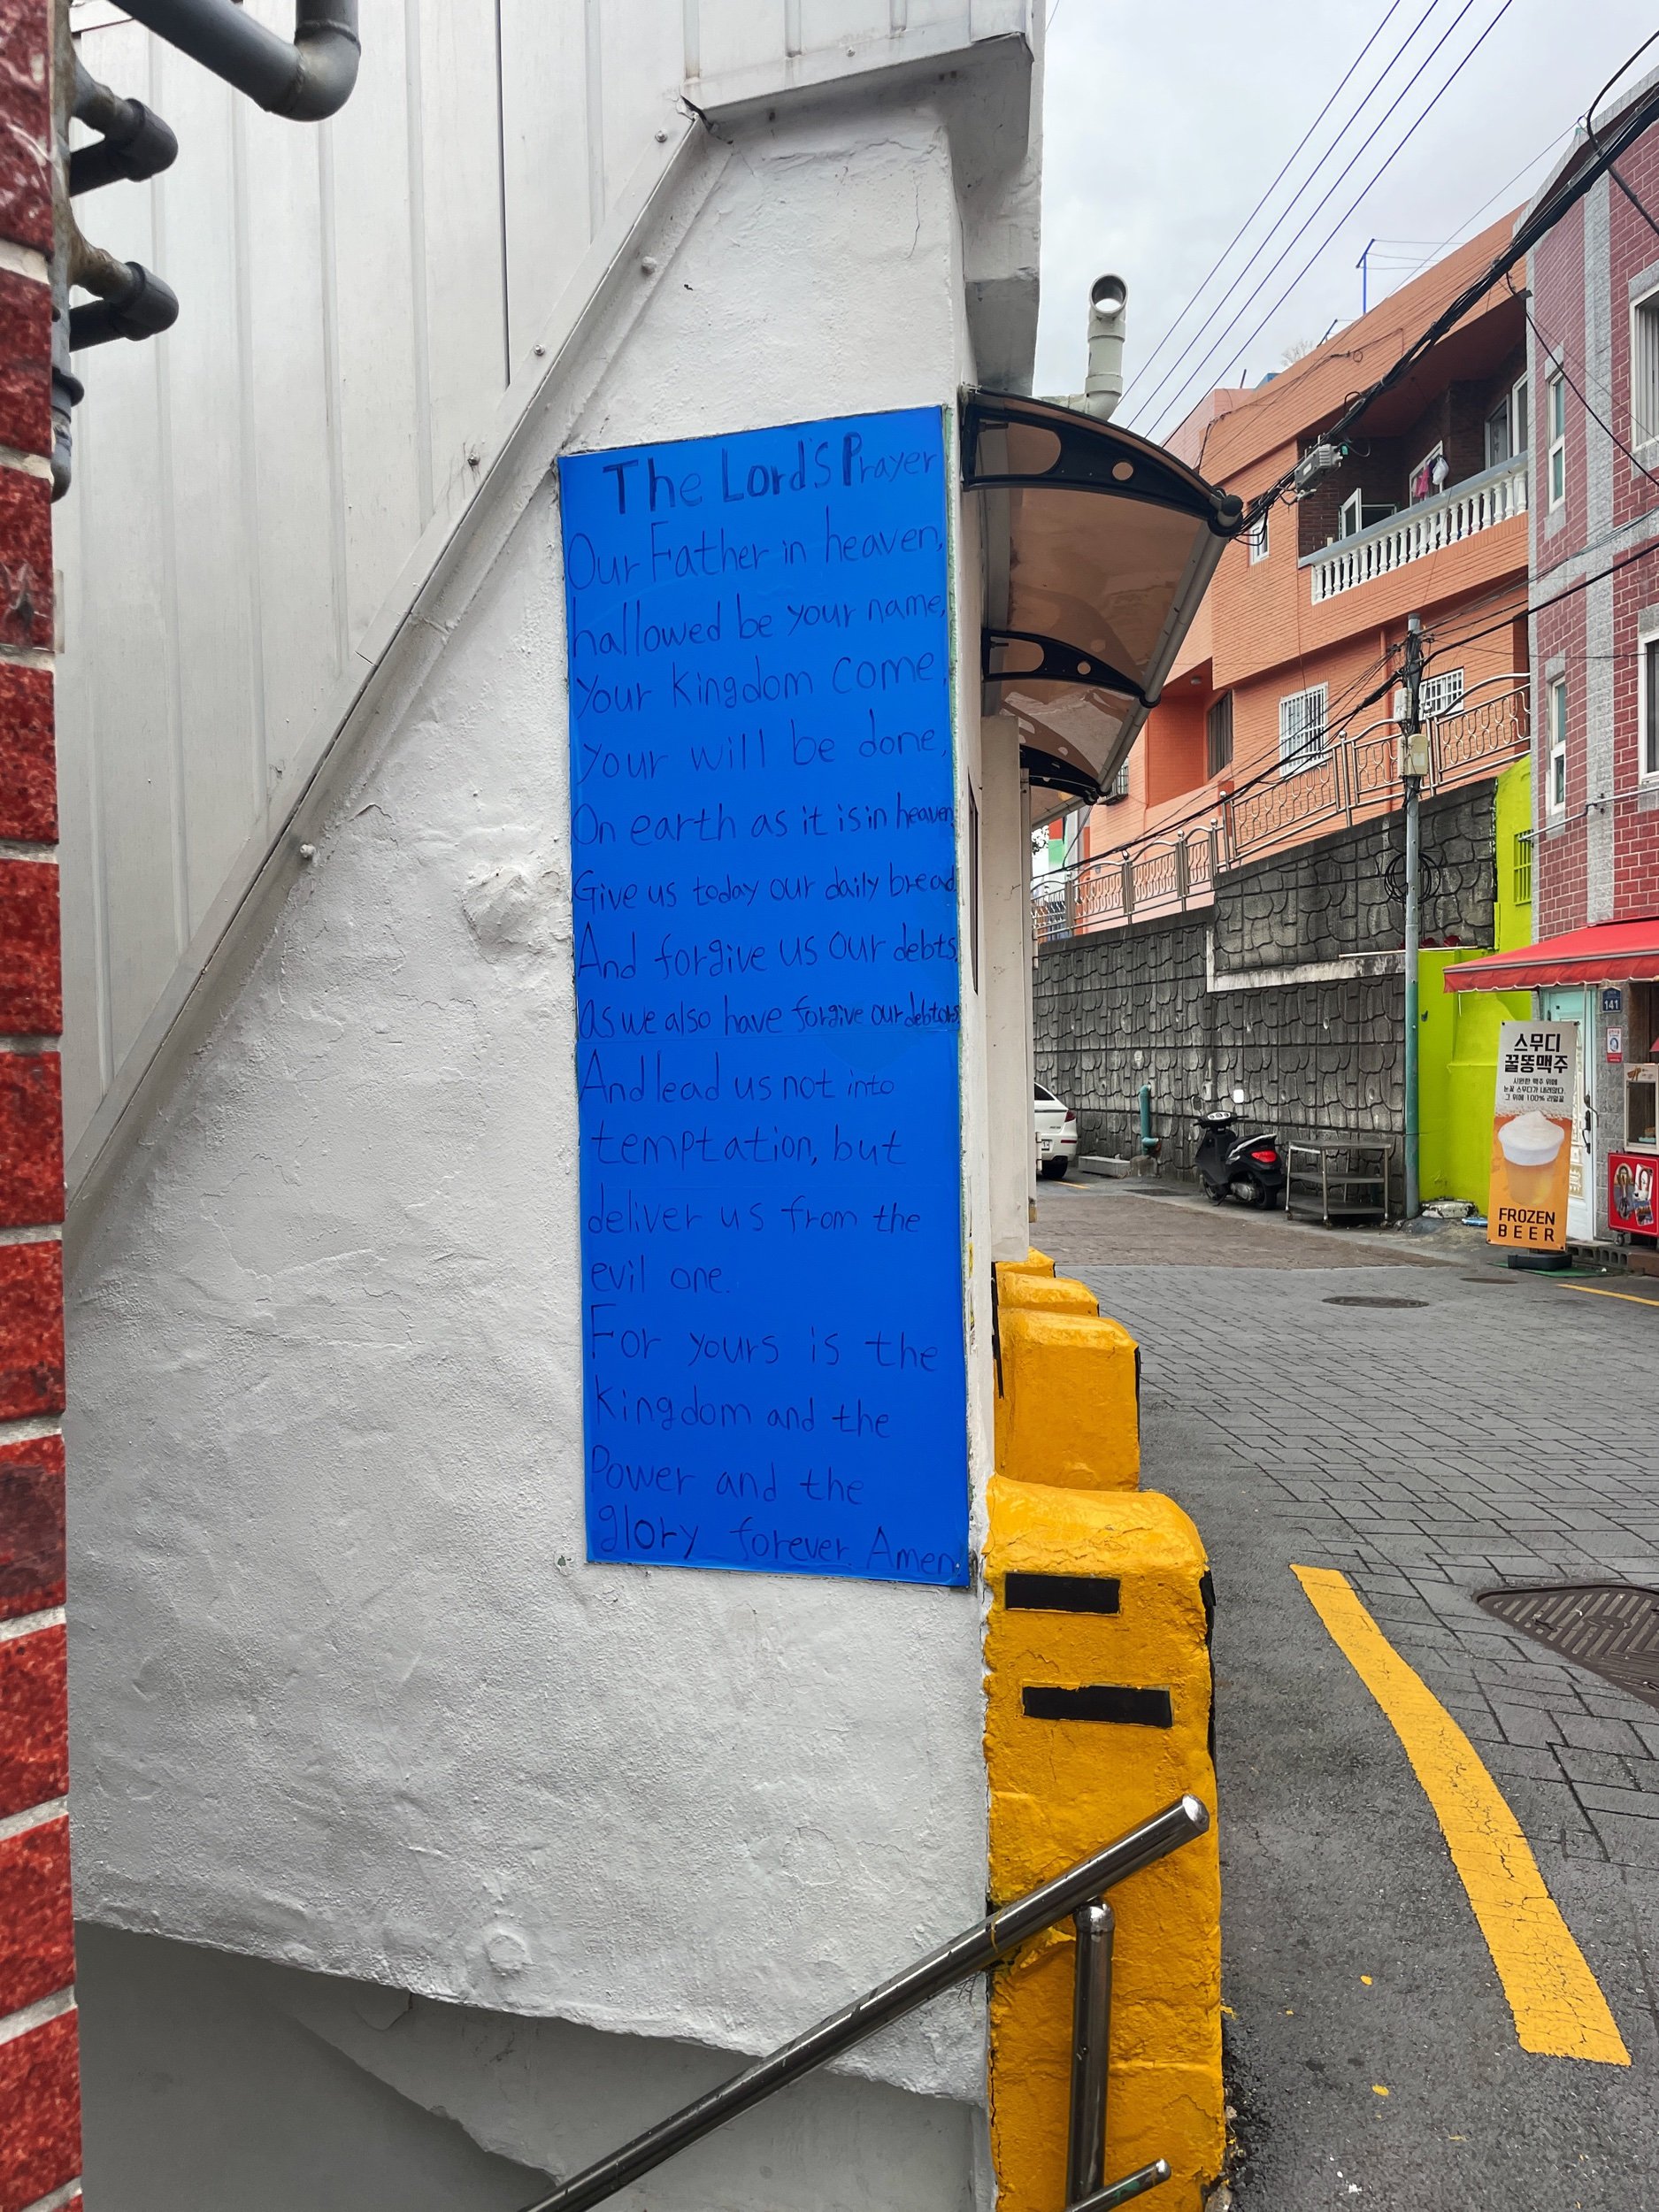 The Lord's Prayer
Our Father in heaven,
hallowed be your name,
your kingdom come,
your will be done,
On earth as it is in heaven
Give us today our daily bread.
And forgive us our debts,
as we also have forgive our debtors
And lead us not into
temptation, but
deliver us from the
evil one.
For yours is the
kingdom and the
Power and the
glory forever. Amen
141
스무디
꿀똥맥주
시원한 맥주 위에
눈꽃 스무디가 내려앉다
그 위에 100% 리얼꿀
FROZEN
BEER